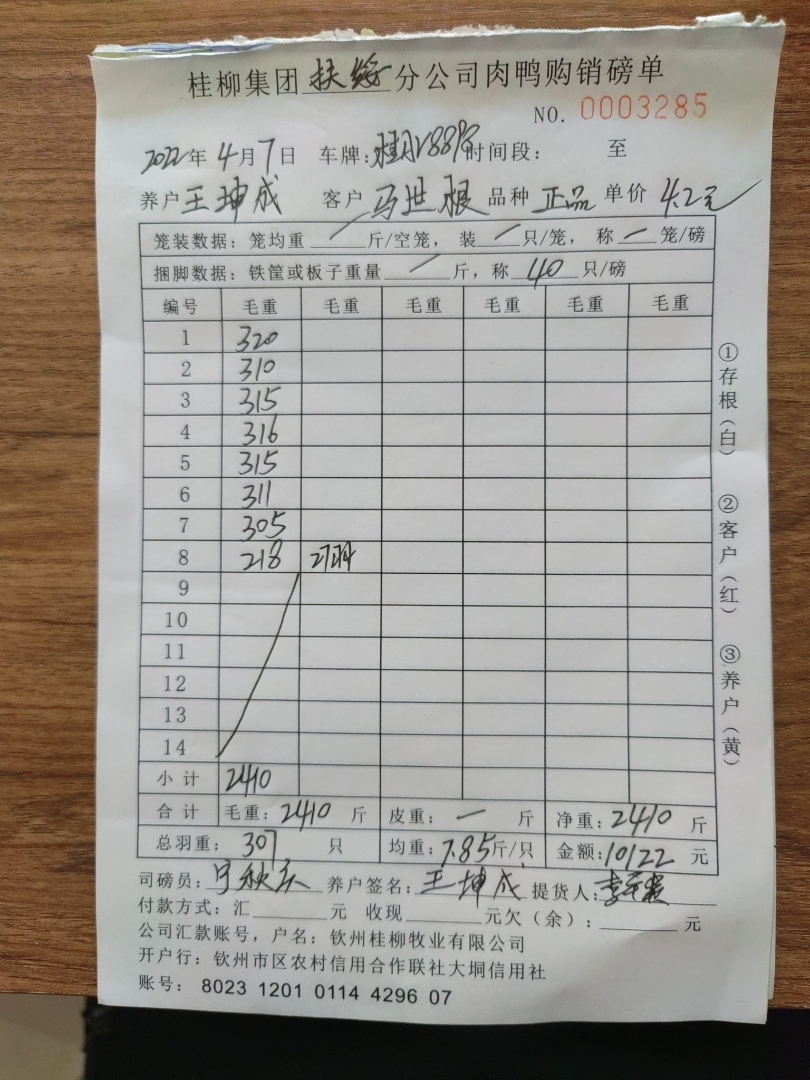 桂柳集团扶绥分公司肉鸭购销磅单
NO. 0003285
2022年4月7日 车牌: 时间段: 至
养户王坤成 客户马世根 品种 正品 单价 4.2元
笼装数据: 笼均重 / 斤/空笼, 装 / 只/笼, 称 一 笼/磅
捆脚数据: 铁筐或板子重量 一 斤, 称 40 只/磅
编号 毛重 毛重 毛重 毛重 毛重 毛重
1 320
2 310
3 315
4 316
5 315
6 311
7 305
8 218 27羽
9
10
11
12
13
14
小计 2410
合计 毛重: 2410 斤 皮重: 一 斤 净重: 2410 斤
总羽重: 307 只 均重: 7.85斤/只 金额: 10122 元
司磅员: 养户签名: 王坤成 提货人:
付款方式: 汇 元 收现 元欠(余): 元
公司汇款账号, 户名: 钦州桂柳牧业有限公司
开户行: 钦州市区农村信用合作联社大垌信用社
账号: 8023 1201 0114 4296 07
①存根(白) ②客户(红) ③养户(黄)